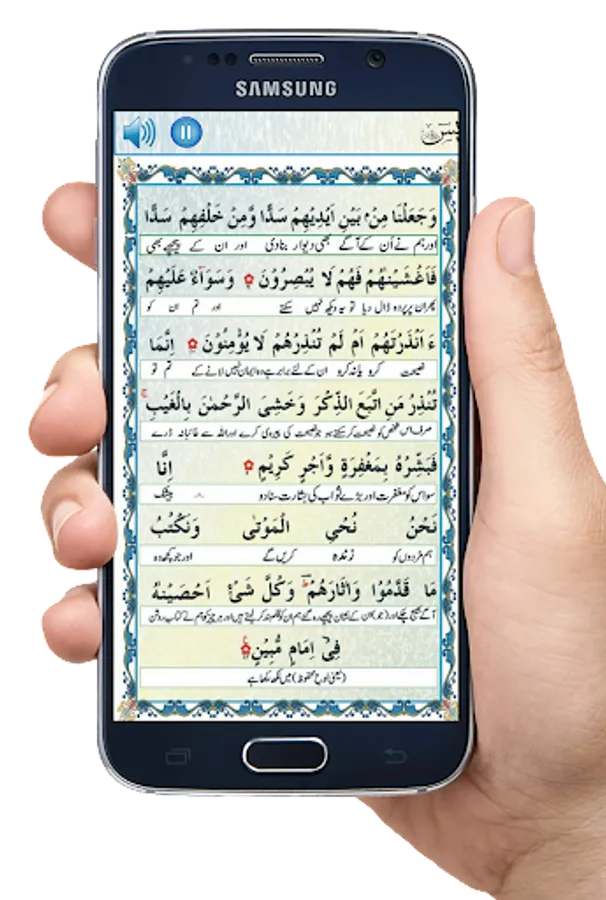 SAMSUNG
یٰسٓ
وَجَعَلْنَا مِنْۢ بَيْنِ اَيْدِيْهِمْ سَدًّا وَّمِنْ خَلْفِهِمْ سَدًّا
اور ہم نے اُن کے آگے بھی دیوار بنا دی اور ان کے پیچھے بھی
فَاَغْشَيْنٰهُمْ فَهُمْ لَا يُبْصِرُوْنَ وَسَوَآءٌ عَلَيْهِمْ
پھر ان پر پردہ ڈال دیا تو یہ دیکھ نہیں سکتے اور تم ان کو
ءَاَنْذَرْتَهُمْ اَمْ لَمْ تُنْذِرْهُمْ لَا يُؤْمِنُوْنَ اِنَّمَا
نصیحت کرو یا نہ کرو ان کے لئے برابر ہے وہ ایمان نہیں لانے کے تم تو
تُنْذِرُ مَنِ اتَّبَعَ الذِّكْرَ وَخَشِىَ الرَّحْمٰنَ بِالْغَيْبِ
صرف اس شخص کو نصیحت کر سکتے ہو جو نصیحت کی پیروی کرے اور اللہ سے غائبانہ ڈرے
فَبَشِّرْهُ بِمَغْفِرَةٍ وَّاَجْرٍ كَرِيْمٍ اِنَّا
سو اس کو مغفرت اور بڑے ثواب کی بشارت سنا دو بیشک
نَحْنُ نُحْىِ الْمَوْتٰى وَنَكْتُبُ
ہم مردوں کو زندہ کریں گے اور جو کچھ وہ
مَا قَدَّمُوْا وَاٰثَارَهُمْ وَكُلَّ شَىْءٍ اَحْصَيْنٰهُ
آگے بھیج چکے اور (جو) ان کے نشان پیچھے رہ گئے ہم ان کو قلمبند کر لیتے ہیں اور ہر چیز کو ہم نے کتاب روشن
فِىْۤ اِمَامٍ مُّبِيْنٍ
(یعنی لوح محفوظ) میں لکھ رکھا ہے